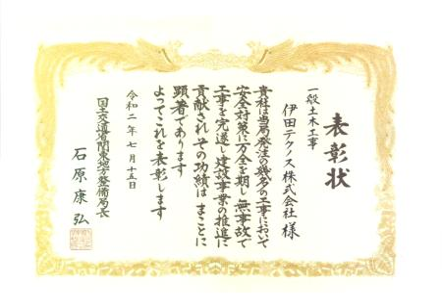 表彰状
一般土木工事
伊田テクノス株式会社 様
貴社は当局発注の幾多の工事において
安全対策に万全を期し無事故で
工事を完遂し建設事業の推進に
貢献されその功績はまことに
顕著であります
よってこれを表彰します
令和二年七月十五日
国土交通省関東地方整備局長
石原康弘